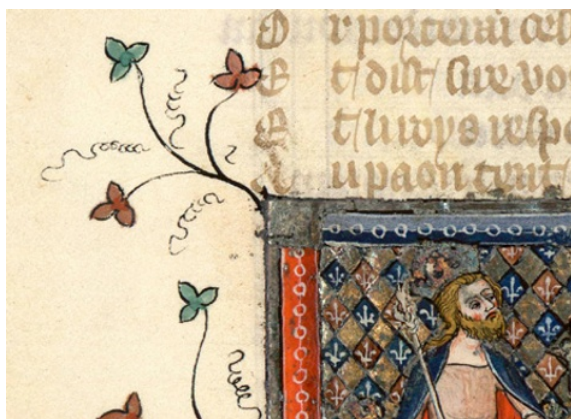 O r porterai cel
E t dist sire vo
E t li roys respo
A u paon tent